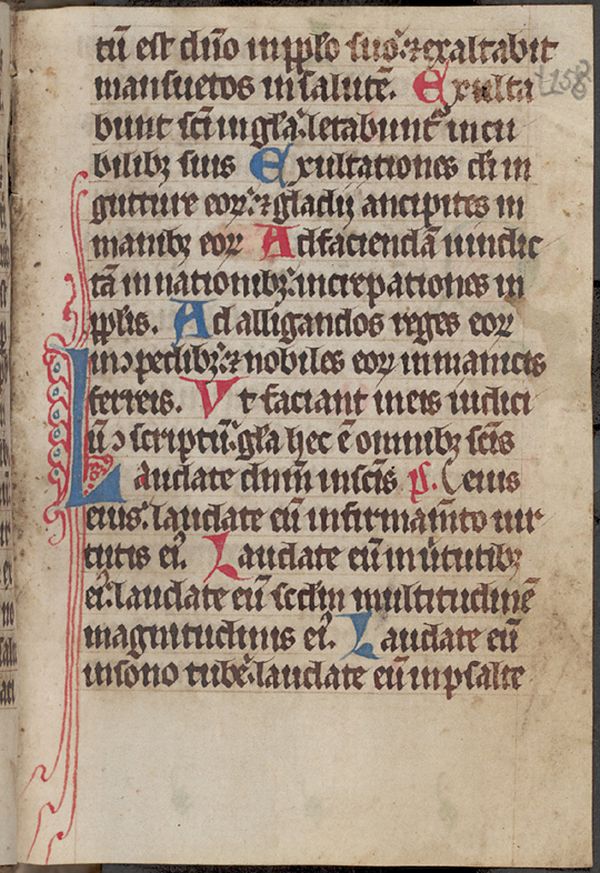 tū est dn̄o in pplo suo: ⁊ exaltabit
mansuetos in salutē. Exulta
158
bunt scī in gla: letabunt᷑ in cu
bilibꝫ suis Exultationes dī in
gutture eoꝝ: ⁊ gladij ancipites in
manibꝫ eoꝝ Ad faciendā uindic
tā in nationibꝫ: increpationes in
pplis. Ad alligandos reges eoꝝ
in ↄpedibꝫ: ⁊ nobiles eoꝝ in manicis
ferreis. Vt faciant in eis iudici
ū ↄscriptū: gla hec ē omnibꝫ scīs
Laudate dnm̄ in scīs p̄s. eius
eius: laudate eū in firmam̄to uir
tutis ei᷒. Laudate eū in uͥtutibꝫ
ei᷒: laudate eū scdm multitudinē
magnitudinis ei᷒. Laudate eū
in sono tube: laudate eū in psalte